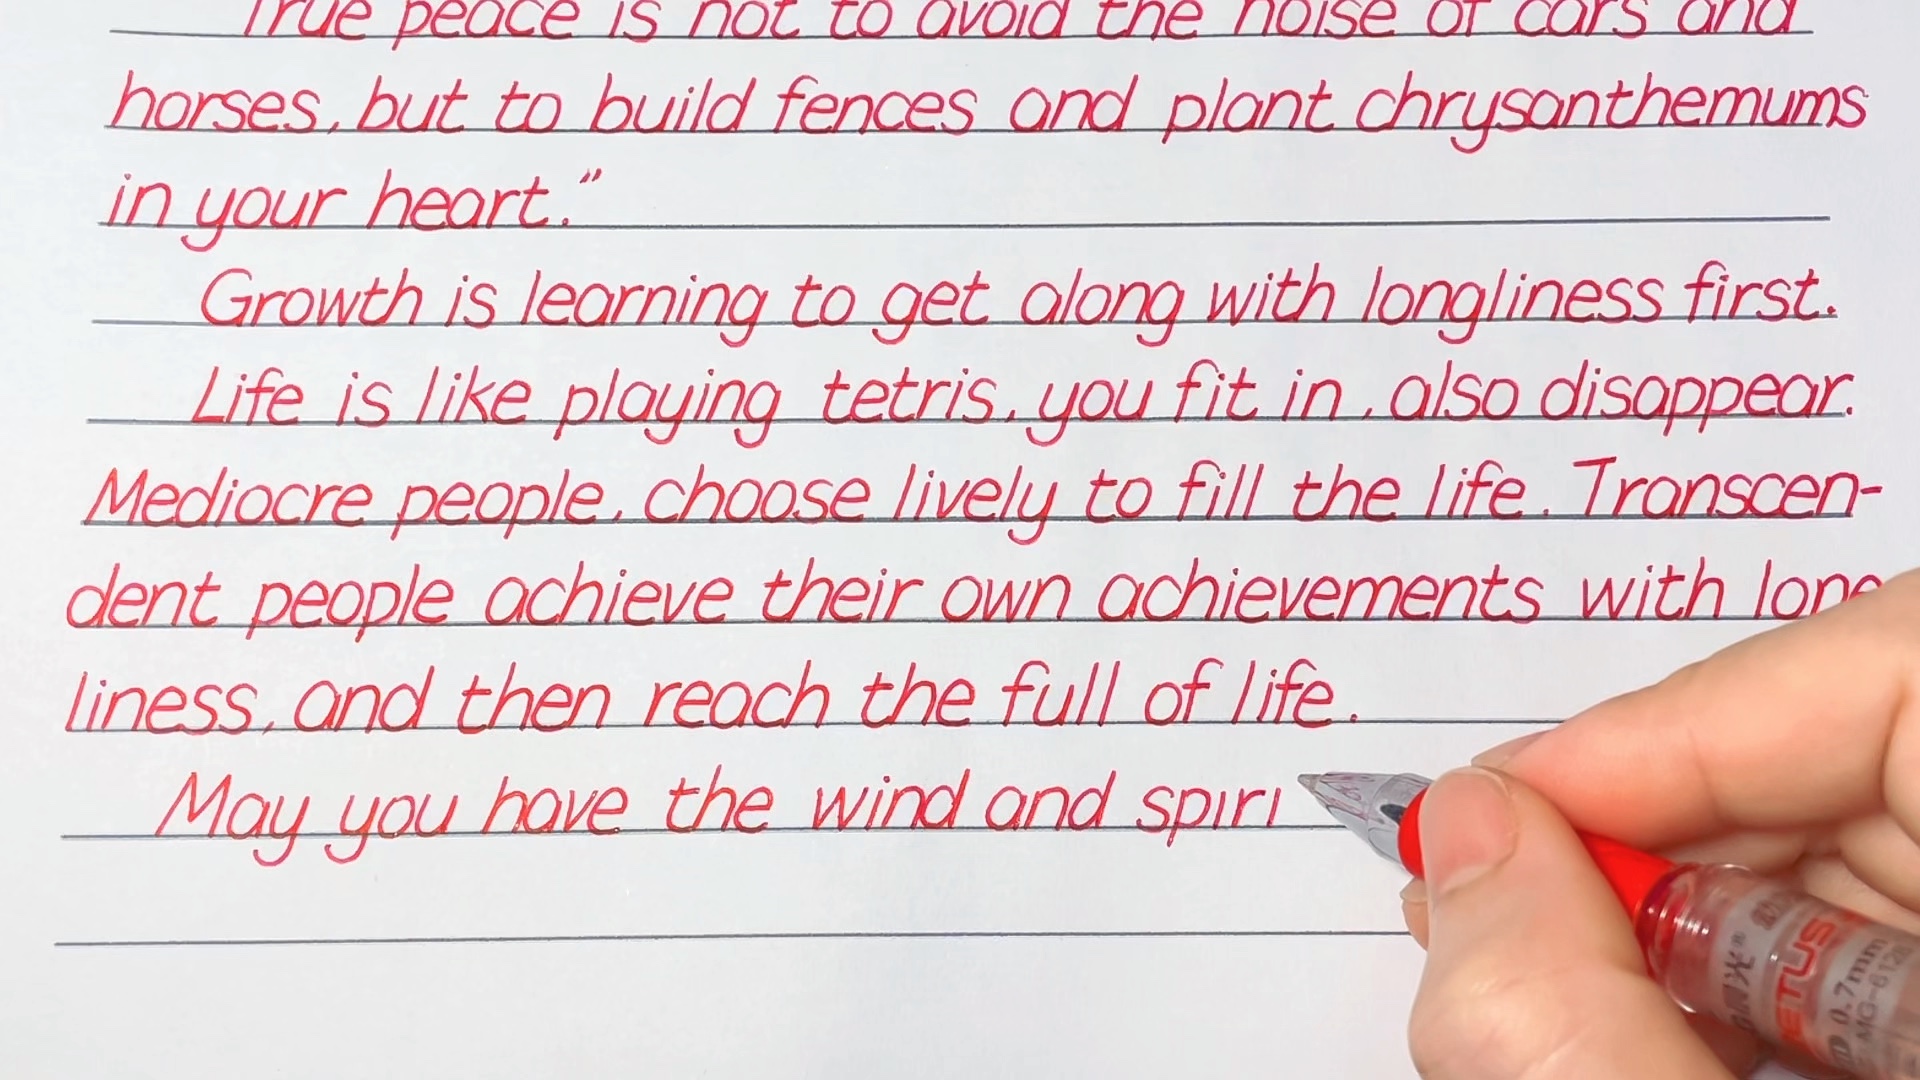 True peace is not to avoid the noise of cars and
horses, but to build fences and plant chrysanthemums
in your heart."
Growth is learning to get along with longliness first.
Life is like playing tetris, you fit in, also disappear.
Mediocre people, choose lively to fill the life. Transcen-
dent people achieve their own achievements with lone
liness, and then reach the full of life.
May you have the wind and spiri
0.7mm